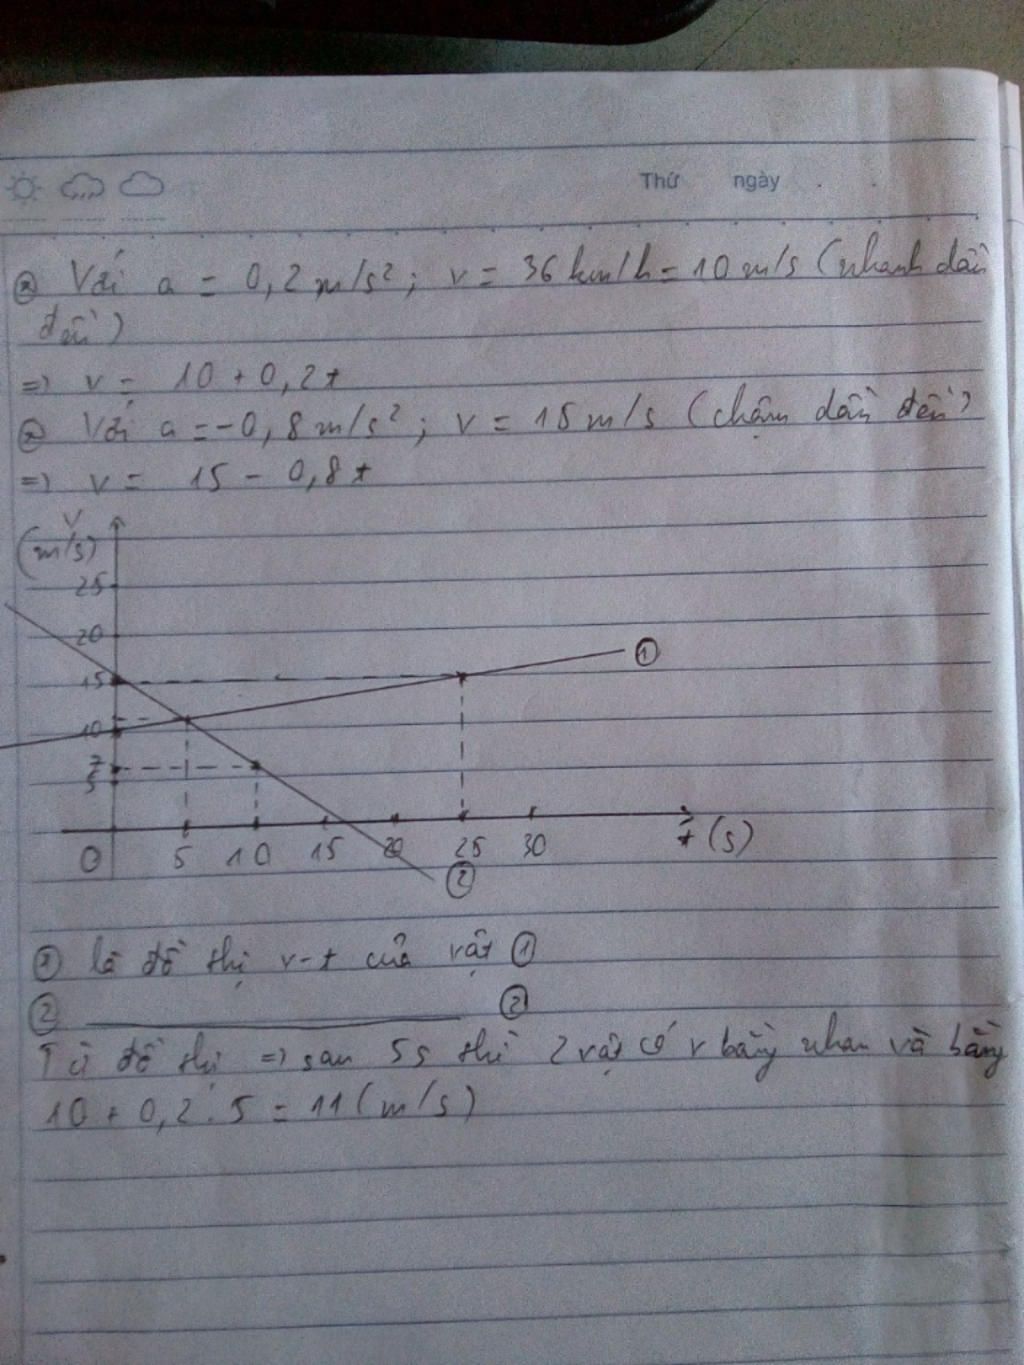 Thứ ngày
* Với a = 0,2 m/s²; v = 36 km/h = 10 m/s (nhanh dần
đều)
=> v = 10 + 0,2t
* Với a = -0,8 m/s²; v = 15 m/s (chậm dần đều)
=> v = 15 - 0,8t
v
(m/s)
25
20
①
15
10
7
5
0 5 10 15 20 25 30 t (s)
②
① là đồ thị v-t của vật ①
② ②
Từ đồ thị => sau 5s thì 2 vật có v bằng nhau và bằng
10 + 0,2.5 = 11 (m/s)